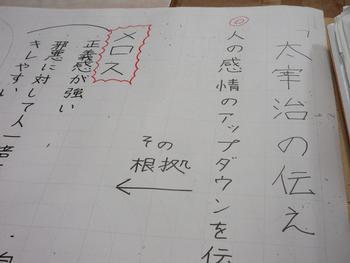 「太宰治の伝え
人の感情のアップダウンを伝
その
根拠
メロス
正義感が強い
邪悪に対して人一倍
キレやすい